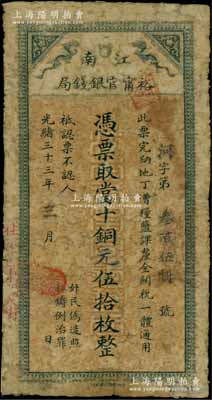 上海陽明拍賣
江南
裕甯官銀錢局
字第 號
此票完納地丁曹糧鹽課釐金關稅一體通用
憑票取當十銅元伍拾枚整
祗認票不認人
光緒三十三年 月 日
奸民偽造照
私鑄例治罪
上海陽明拍賣